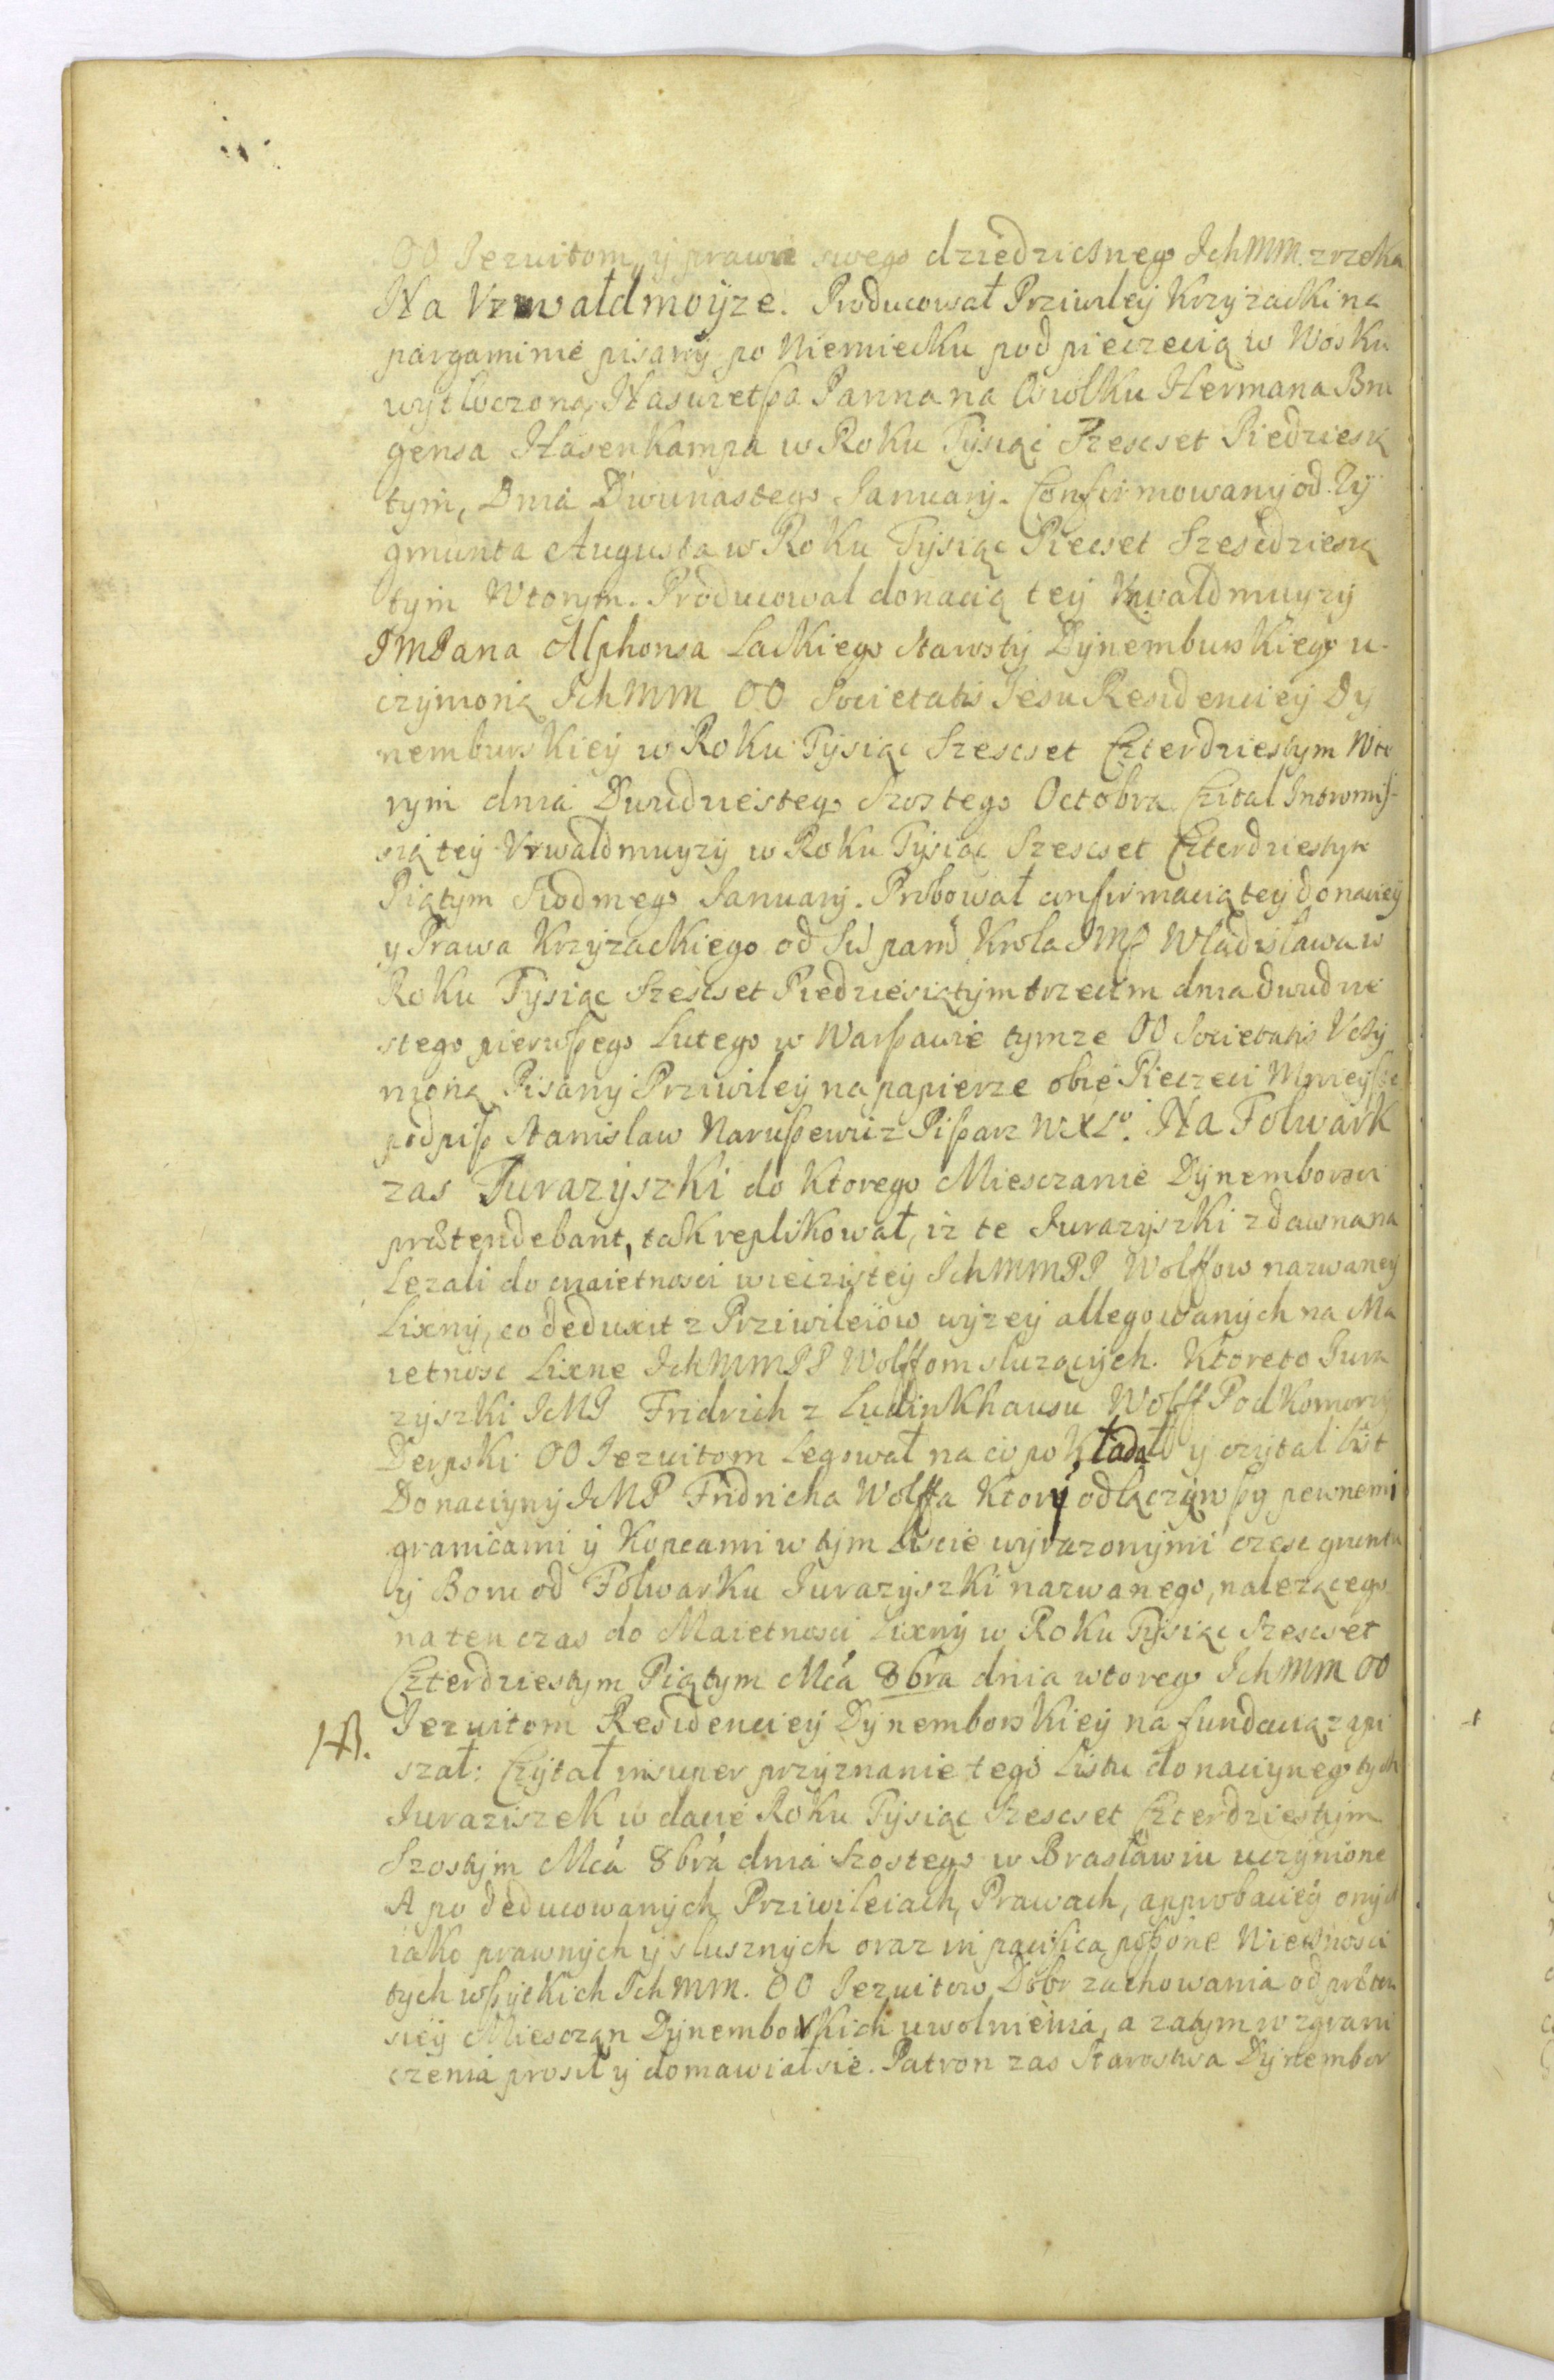 OO Jezuitom, y prawa swego dziedzicznego IchMM. zrzeka
Na Vrwałdmoyze. Producował Prziwiley Krzyzacki na
pargaminie pisany po Niemiecku pod pieczecią w Wosku
wytłoczoną, Panna na Hermana Bru
gensa Hasenkampa w Roku Tysiąc Szescset Piedziesią
tym, Dnia Dwunastego January. Confirmowany od Zy
gmunta Augusta w Roku Tysiąc Piecset Szescdziesią
tym Wtorym. Producował donacią tey Vrwaldmuyzy
JMPana Alphonsa Lackiego Starosty Dynemburskiego u-
czynioną IchMM OO Societatis Jesu Residenciey Dy
nemburskiey w Roku Tysiąc Szescset Czterdziestym Wto
rym dnia Dwudziestego Szostego Octobra. Czital Intromis-
sią tey Vrwaldmuyzy w Roku Tysiąc Szescset Czterdziestym
Piątym Siodmego January. Probował confirmacią tey donaciey
y Prawa Krzyzackiego od Krola JMP Wladisława w
Roku Tysiąc Szescset Piedziesiątym trzecim dnia dwudzie
stego pierwszego Lutego w Warszawie tymze OO Societatis Vczy
nioną Pisany Prziwiley na papierze obie Pieczeci Mnieysze
podpisz Stanislaw Naruszewicz Piszarz WXLo. Na Folwark
zas Jurazyszki do Ktorego Miesczanie Dynemborscy
prætendebant, tak replikował, iz te Jurazyszki zdawna na
Lezali do maietnosci wieczistey IchMMPP Wolffow nazwaney
Lixny, co deduxit z Prziwileiow wyzey allegowanych na Ma
ietnosc Lixne IchMMPP Wolffom sluzących. Ktoreto Jura
zyszki JcMP Fridrich z Ludinkhausu Wolff Podkomorzy
Derpski OO Jezuitom Legował na co pokładał y czytal List
Donacyiny JcMP Fridricha Wolffa Ktory odłączywszy pewnemi
granicami y Kopcami w tym Liscie wyrazonymi czesc gruntu
y Boru od Folwarku Jurazyszki nazwanego, nalezącego
na ten czas do Maietnosci Lixny w Roku Tysiąc Szescset
Czterdziestym Piątym Mca 8bra dnia wtorego IchMM OO
Jezuitom Residenciey Dynemborskiey na fundacią zapi
szał: Czytał insuper przyznanie tego Listu donacyinego tych
Juraziszek w dacie Roku Tysiąc Szescset Czterdziestym
Szostym Mca 8bra dnia Szostego w Brasławiu uczynione
A po deducowanych Prziwileiach, Prawach, approbaciey onych
iako prawnych y slusznych oraz in pacifica possone Wiecznosci
tych wszytkich IchMM. OO Jezuitow Dobr zachowania od præten
siey Miesczan Dynemborskich uwolnienia, a zatym w zgrani
czenia prosił y domawiał sie. Patron zas Starostwa Dynembor